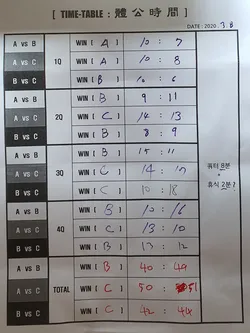 [ TIME-TABLE : 體公時間 ]
DATE : 2020. 3. 8
A vs B 1Q WIN [ A ] 10 : 7
A vs C WIN [ A ] 10 : 8
B vs C WIN [ B ] 10 : 6
A vs B 2Q WIN [ B ] 9 : 11
A vs C WIN [ C ] 14 : 13
B vs C WIN [ B ] 8 : 9
A vs B 3Q WIN [ B ] : 11
A vs C WIN [ C ] 14 :
B vs C WIN [ C ] 10 : 18
쿼터 8분
+
휴식 2분
A vs B 4Q WIN [ B ] 10 : 16
A vs C WIN [ C ] 13 : 10
B vs C WIN [ B ] 13 : 12
A vs B TOTAL WIN [ B ] 40 : 49
A vs C WIN [ C ] 50 : 51
B vs C WIN [ C ] 42 : 44